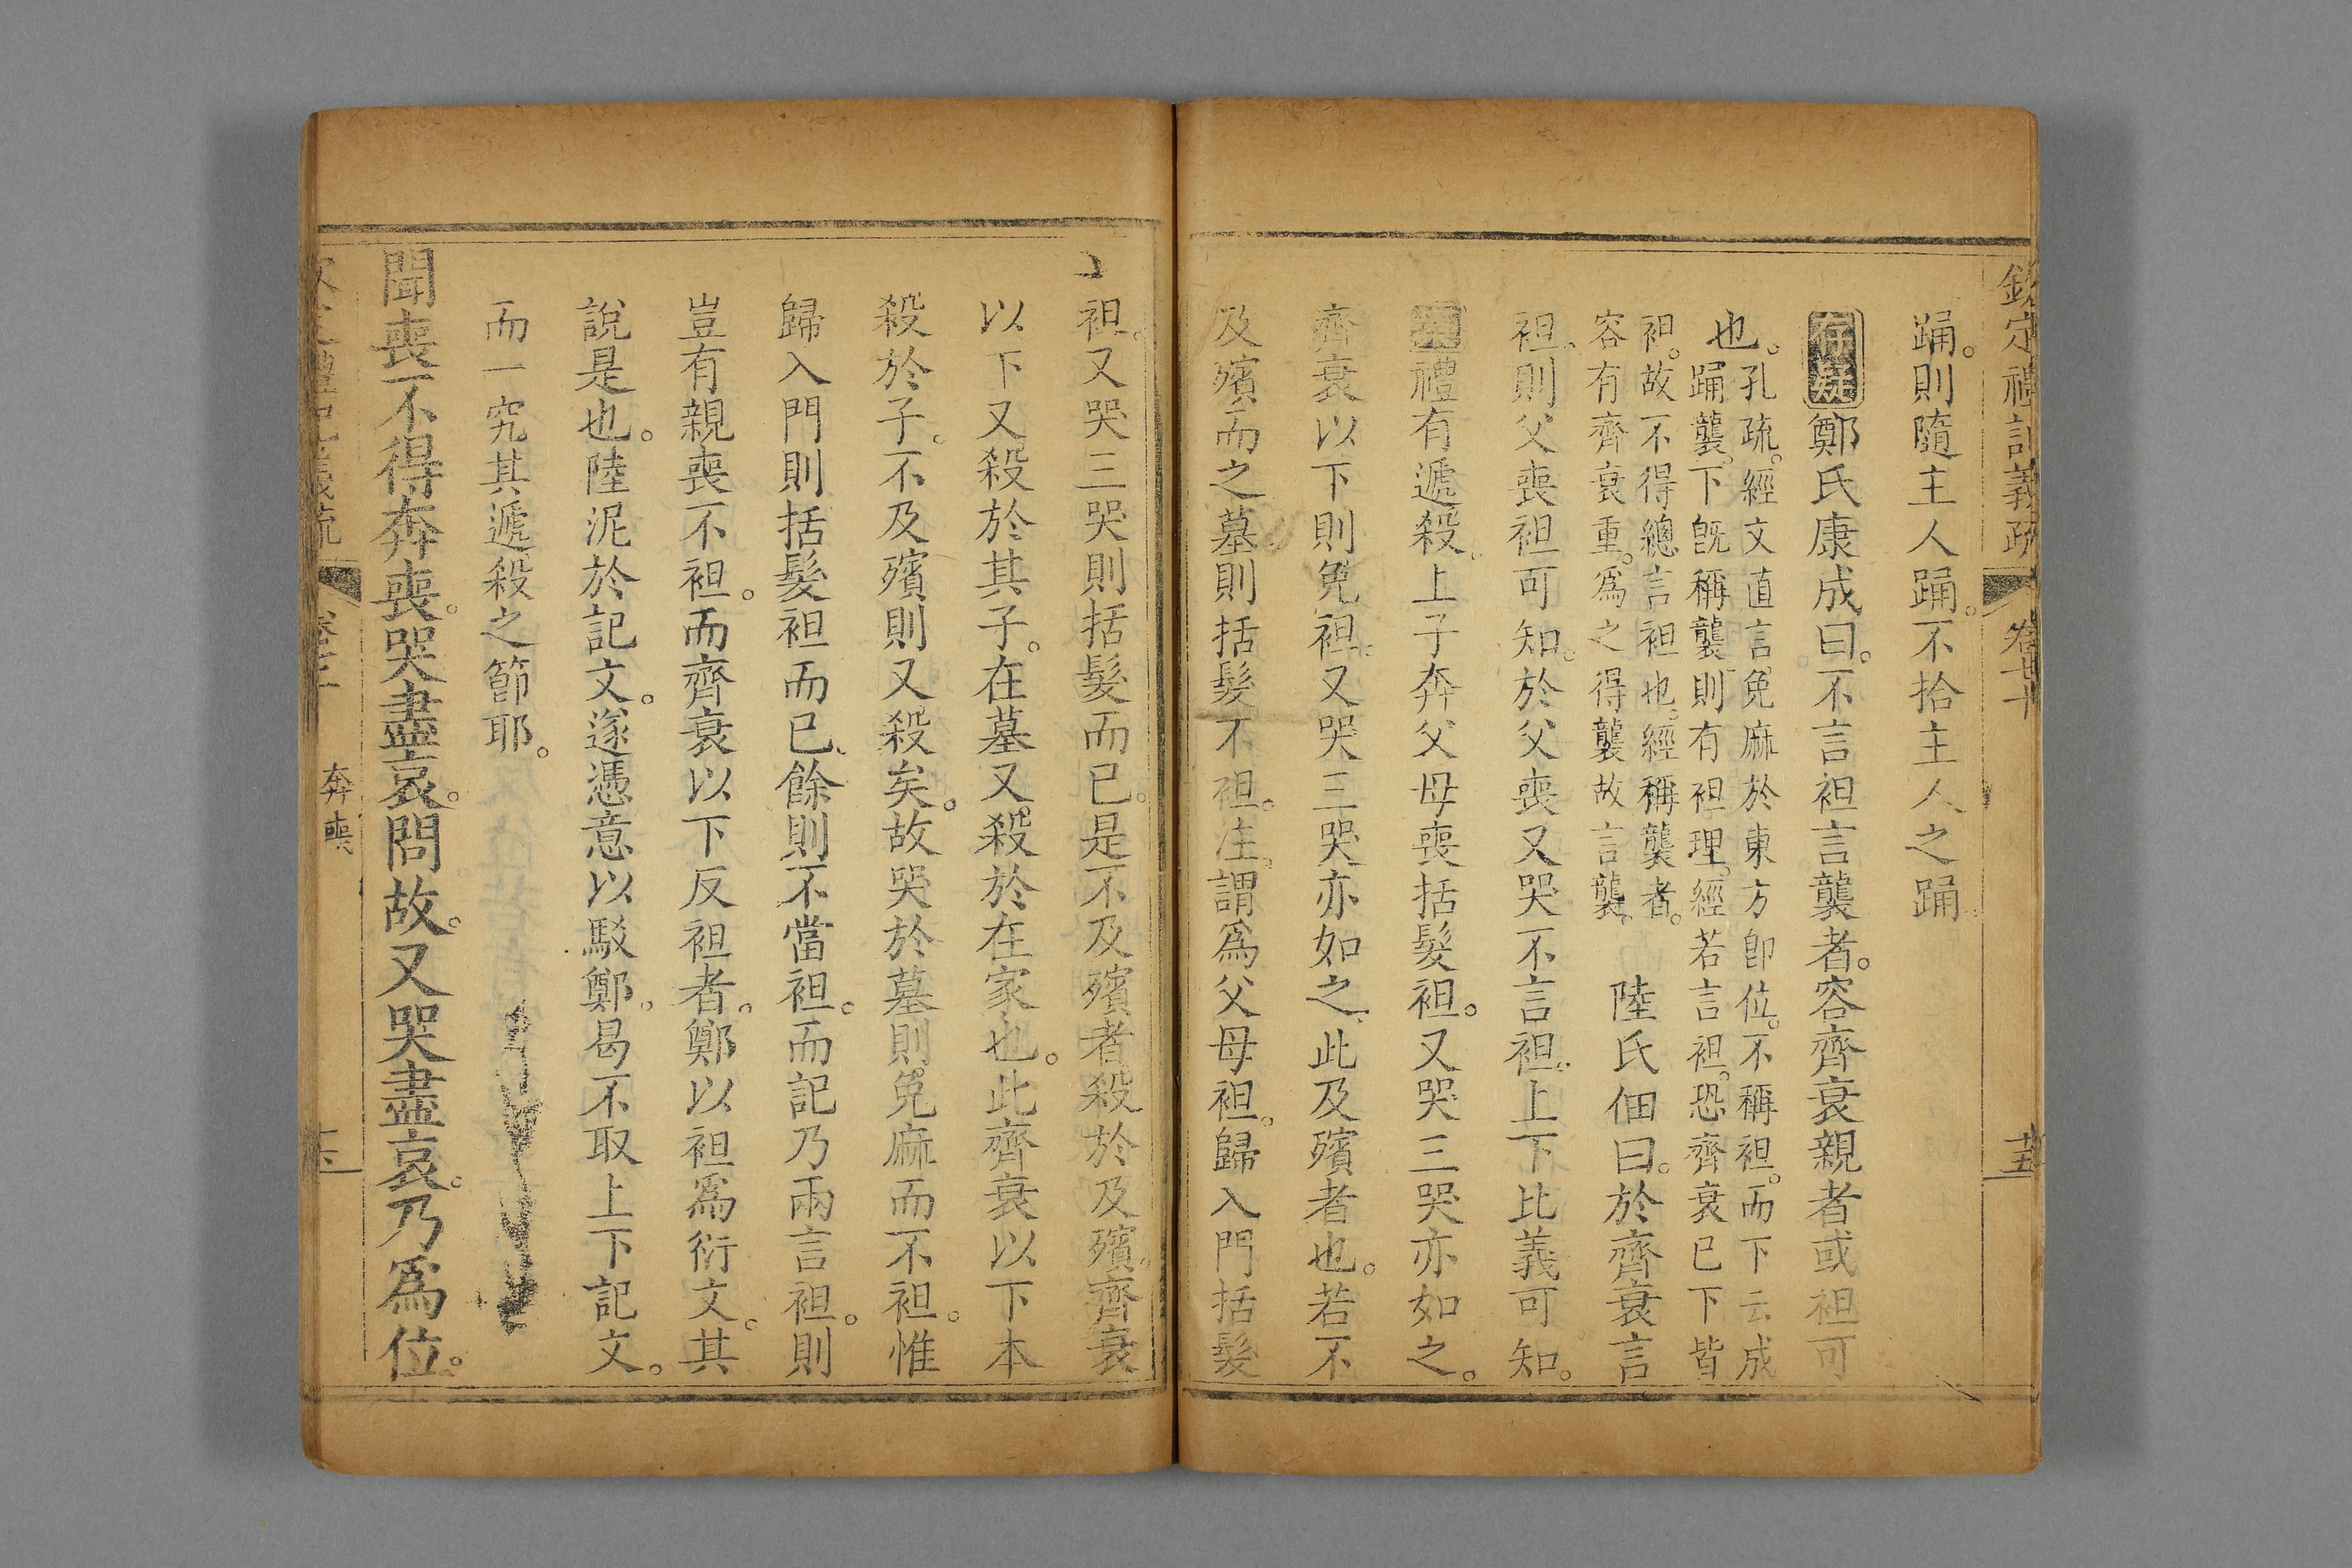 欽定禮記義疏 卷七十 十五
踊。則隨主人踊。不拾主人之踊。
存疑鄭氏康成曰。不言袒言襲者。容齊衰親者或袒可
也。孔疏。經文直言免麻於東方卽位。不稱袒。而下云成
踊襲。下旣稱襲。則有袒理。經若言袒。恐齊衰已下皆
袒。故不得總言袒也。經稱襲者。
容有齊衰重。爲之得襲故言襲。
陸氏佃曰。於齊衰言
袒。則父喪袒可知。於父喪又哭不言袒。上下比義可知。
禮有遞殺。上子奔父母喪括髮袒。又哭三哭亦如之。
齊衰以下則免袒。又哭三哭亦如之。此及殯者也。若不
及殯而之墓則括髮不袒。注。謂爲父母袒。歸入門括髮
袒。又哭三哭則括髮而已。是不及殯者。殺於及殯。齊衰
以下又殺於其子。在墓又殺於在家也。此齊衰以下本
殺於子。不及殯則又殺矣。故哭於墓則免麻而不袒。惟
歸入門則括髮袒而已。餘則不當袒。而記乃兩言袒。則
豈有親喪不袒。而齊衰以下反袒者。鄭以袒爲衍文。其
說是也。陸泥於記文。遂憑意以駁鄭。曷不取上下記文。
而一究其遞殺之節耶。
聞喪不得奔喪。哭盡哀。問故。又哭盡哀。乃爲位。
禮記義疏 奔喪